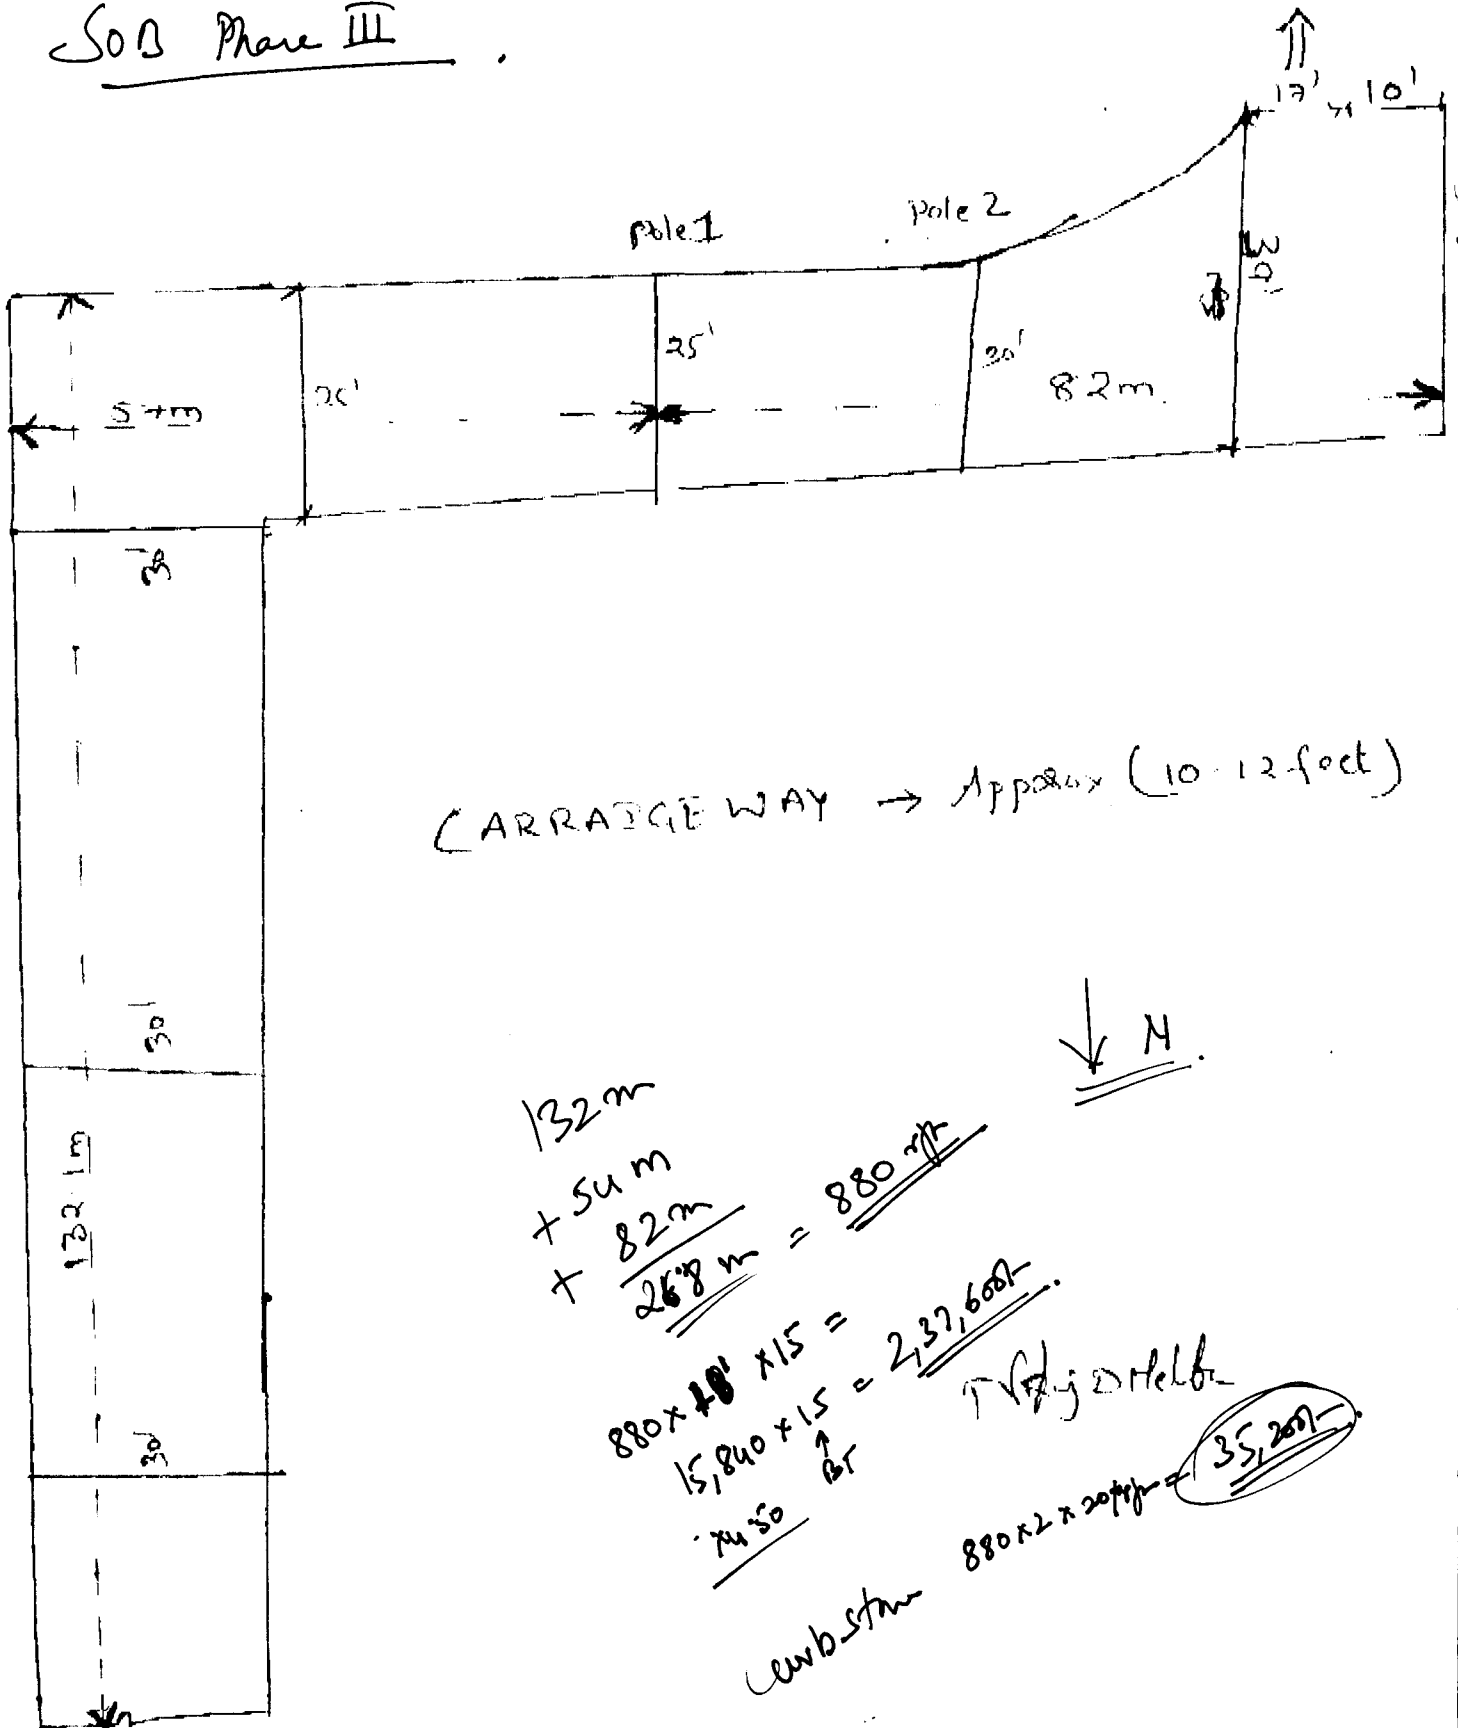 SOB Phase III .
17' 10'
Pole 1
Pole 2
25'
30'
82m.
30'
30'
132.1m
30'
CARRAIGE WAY → Approx (10-12 feet)
N.
132m
+ 54m
+ 82m
268m = 880 rft
880 x 18' x 15 =
15,840 x 15 = 2,37,600/-.
↑
BT
curb stone 880x2 x 20/- = 35,200/-.